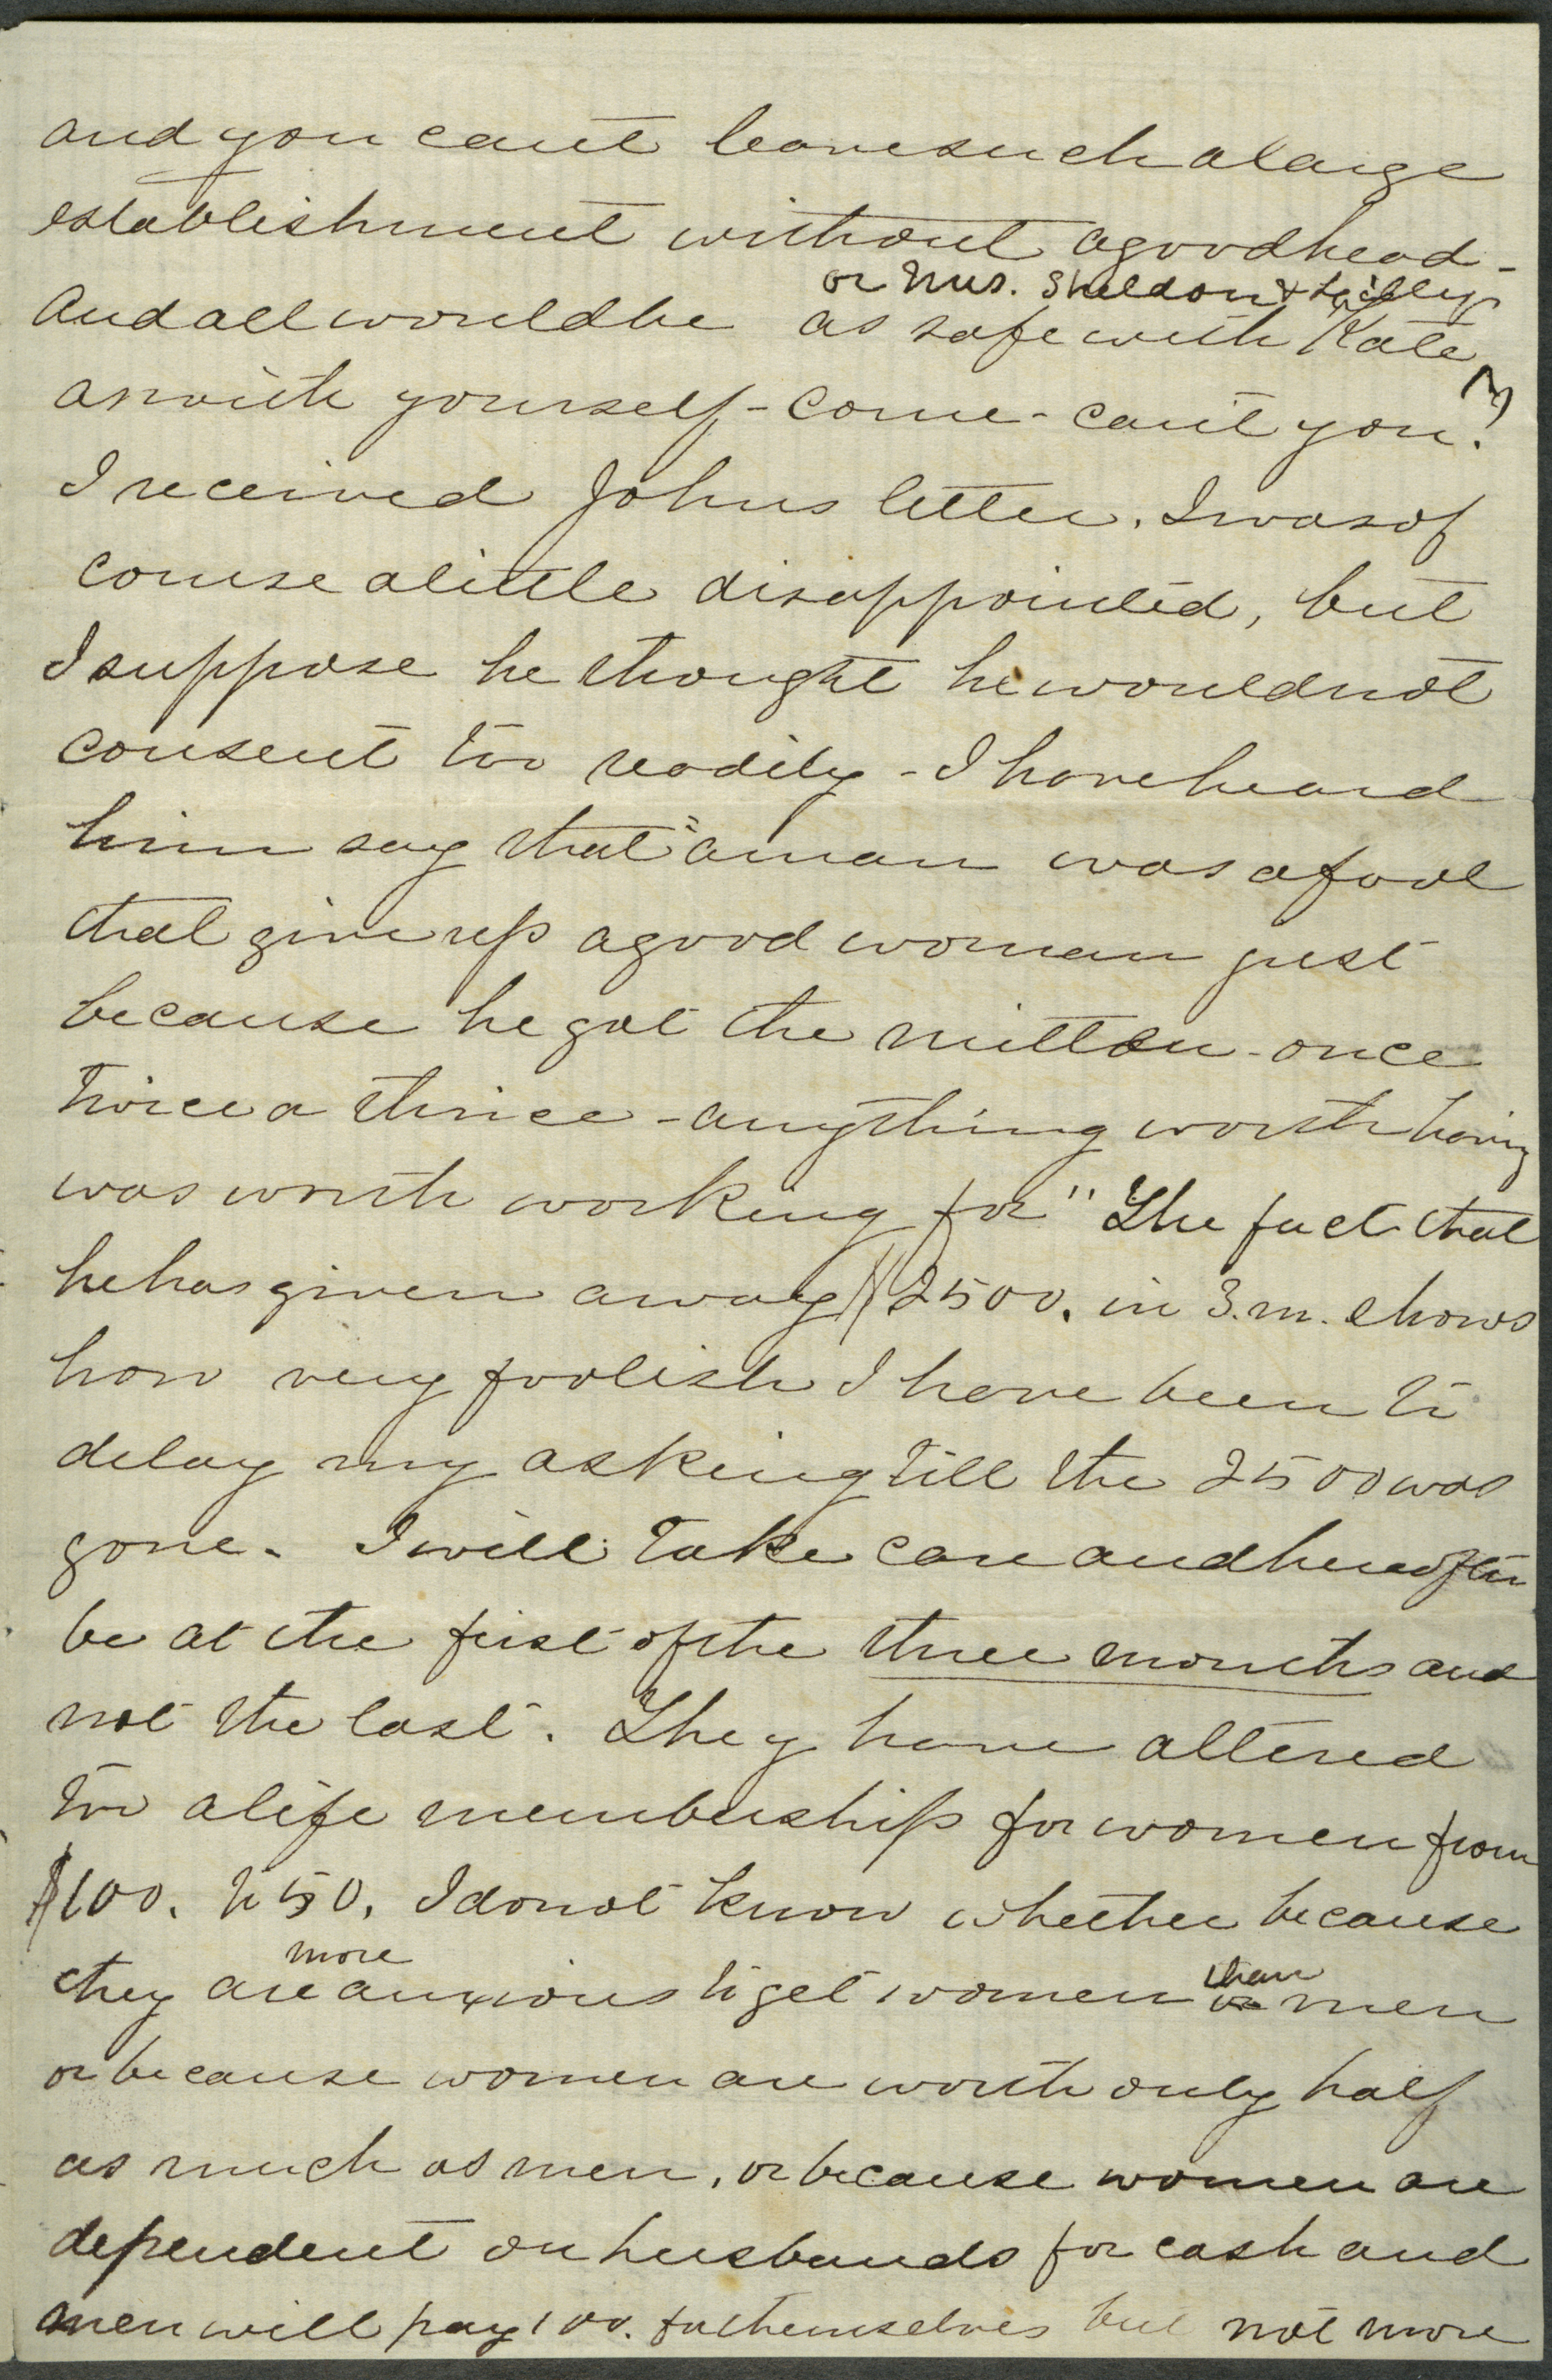 and you cant leave such a large
establishment without a good head -
or Mrs. Sheldon &
And all would be as safe with Kate
as with yourself - come - can't you?
I received Johns letter. I was of
course a little disappointed, but
I suppose he thought he would not
consent too readily - I have heard
him say that "a man was a fool
that give up a good woman just
because he got the mitten - once
twice or thrice - anything worth having
was worth working for" The fact that
he has given away $2500. in 3. m. shows
how very foolish I have been to
delay my asking till the 2500 was
gone. I will take care and hereafter
be at the first of the three months and
not the last. They have altered
too a life membership for women from
$100. to 50. I do not know whether because
more
they are anxious to get women than men
or because women are worth only half
as much as men, or because women are
dependent on husbands for cash and
men will pay 100. for themselves but not more